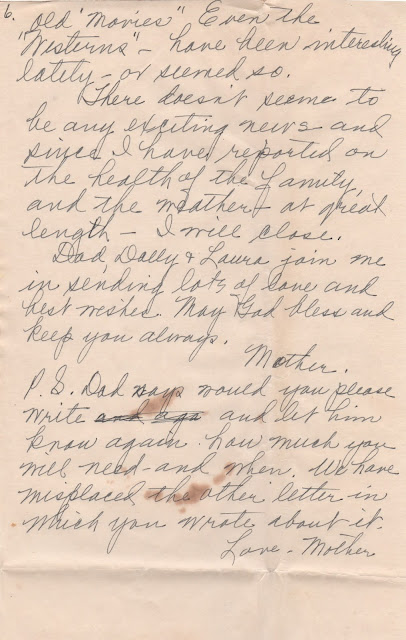 6. "Old 'Movies'" Even the
"Westerns" - have been interesting
lately - or seemed so.
There doesn't seems to
be any exciting news and
since I have reported on
the health of the family,
and the weather - at great
length - I will close.
Dad, Dolly & Laura join me
in sending lots of love and
best wishes. May God bless and
keep you always.
Mother.
P.S. Dad says would you please
write and aga and let him
know again how much you
will need - and when. We have
misplaced the other letter in
which you wrote about it.
Love - Mother